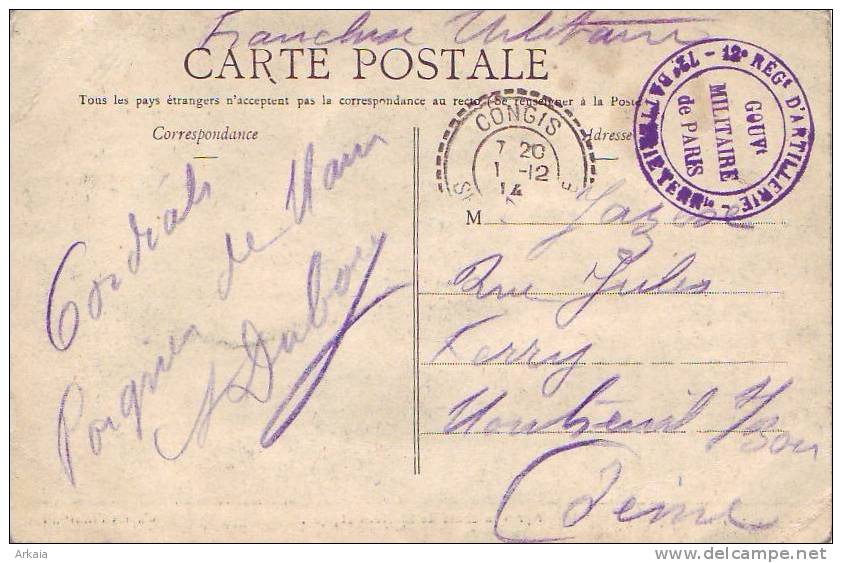 Franchise Militaire
CARTE POSTALE
Tous les pays étrangers n'acceptent pas la correspondance au recto (Se renseigner à la Poste
Correspondance
Adresse
CONGIS
7 20
1 -12
14
12e REGt D'ARTILLERIE - 72e BATTERIE
GOUVt
MILITAIRE
de PARIS
Cordiale
Poignée de Main
Dubois
M
Rue Jules
Ferry
Montreuil s/Bois
Seine
Arkaia
© delcampe.net